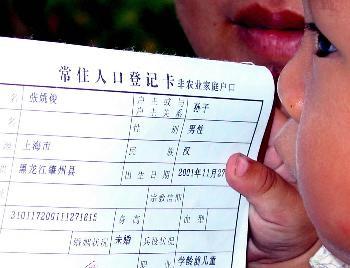 常住人口登记卡 非农业家庭户口
名 张筑俊 户主或与户主关系 孙子
名 性别 男性
上海市 民族 汉
黑龙江肇州县 出生日期 2001年11月27
宗教信仰
310117200111271215 身高 血型
婚姻状况 未婚 兵役状况
职业 学龄前儿童